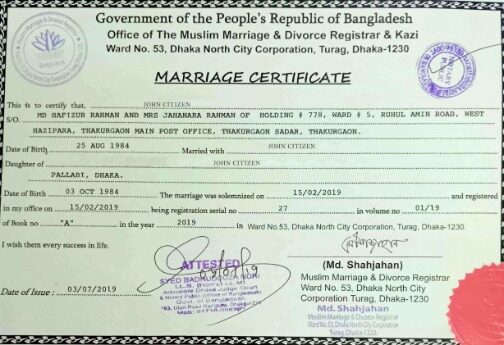 Government of the People's Republic of Bangladesh
Office of The Muslim Marriage & Divorce Registrar & Kazi
Ward No. 53, Dhaka North City Corporation, Turag, Dhaka-1230
MARRIAGE CERTIFICATE
This is to certify that. JOHN CITIZEN
S/O. MD HAFIZUR RAHMAN AND MRS JAHANARA RAHMAN OF HOLDING # 778, WARD # 5, RUHUL AMIN ROAD, WEST
HAZIPARA, THAKURGAON MAIN POST OFFICE, THAKURGAON SADAR, THAKURGAON.
Date of Birth 25 AUG 1984 Married with JOHN CITIZEN
Daughter of JOHN CITIZEN
PALLABI, DHAKA.
Date of Birth 03 OCT 1984 The marriage was solemnized on 15/02/2019 and registered
in my office on 15/02/2019 being registration serial no 27 in volume no 01/19
of Book no "A" in the year 2019 in Ward No.53, Dhaka North City Corporation, Turag, Dhaka-1230.
I wish them every success in life.
ATTESTED
03/07/19
SYED BADRUDDOZA NURI
Advocate Dhaka Judge Court
& Notary Public Office of Bangladesh
Govt. of Bangladesh
(Md. Shahjahan)
Muslim Marriage & Divorce Registrar
Ward No. 53, Dhaka North City
Corporation Turag, Dhaka-1230
Md. Shahjahan
Muslim Marriage & Divorce Registrar
Date of Issue : 03/07/2019